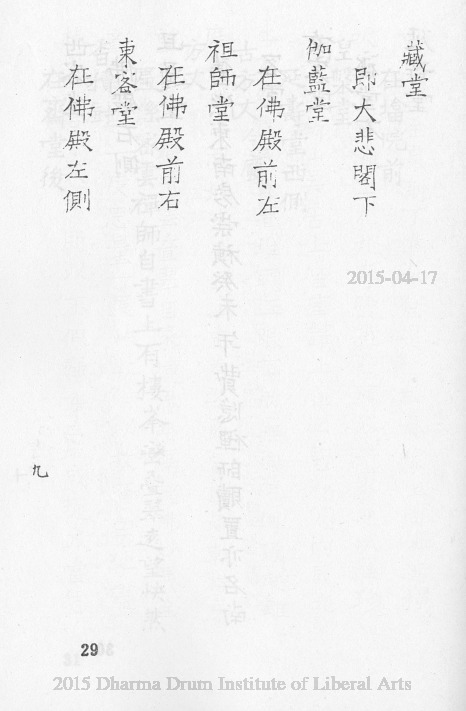 藏堂
即大悲閣下
伽藍堂
在佛殿前左
祖師堂
在佛殿前右
東客堂
在佛殿左側
九
2015-04-17
29
2015 Dharma Drum Institute of Liberal Arts